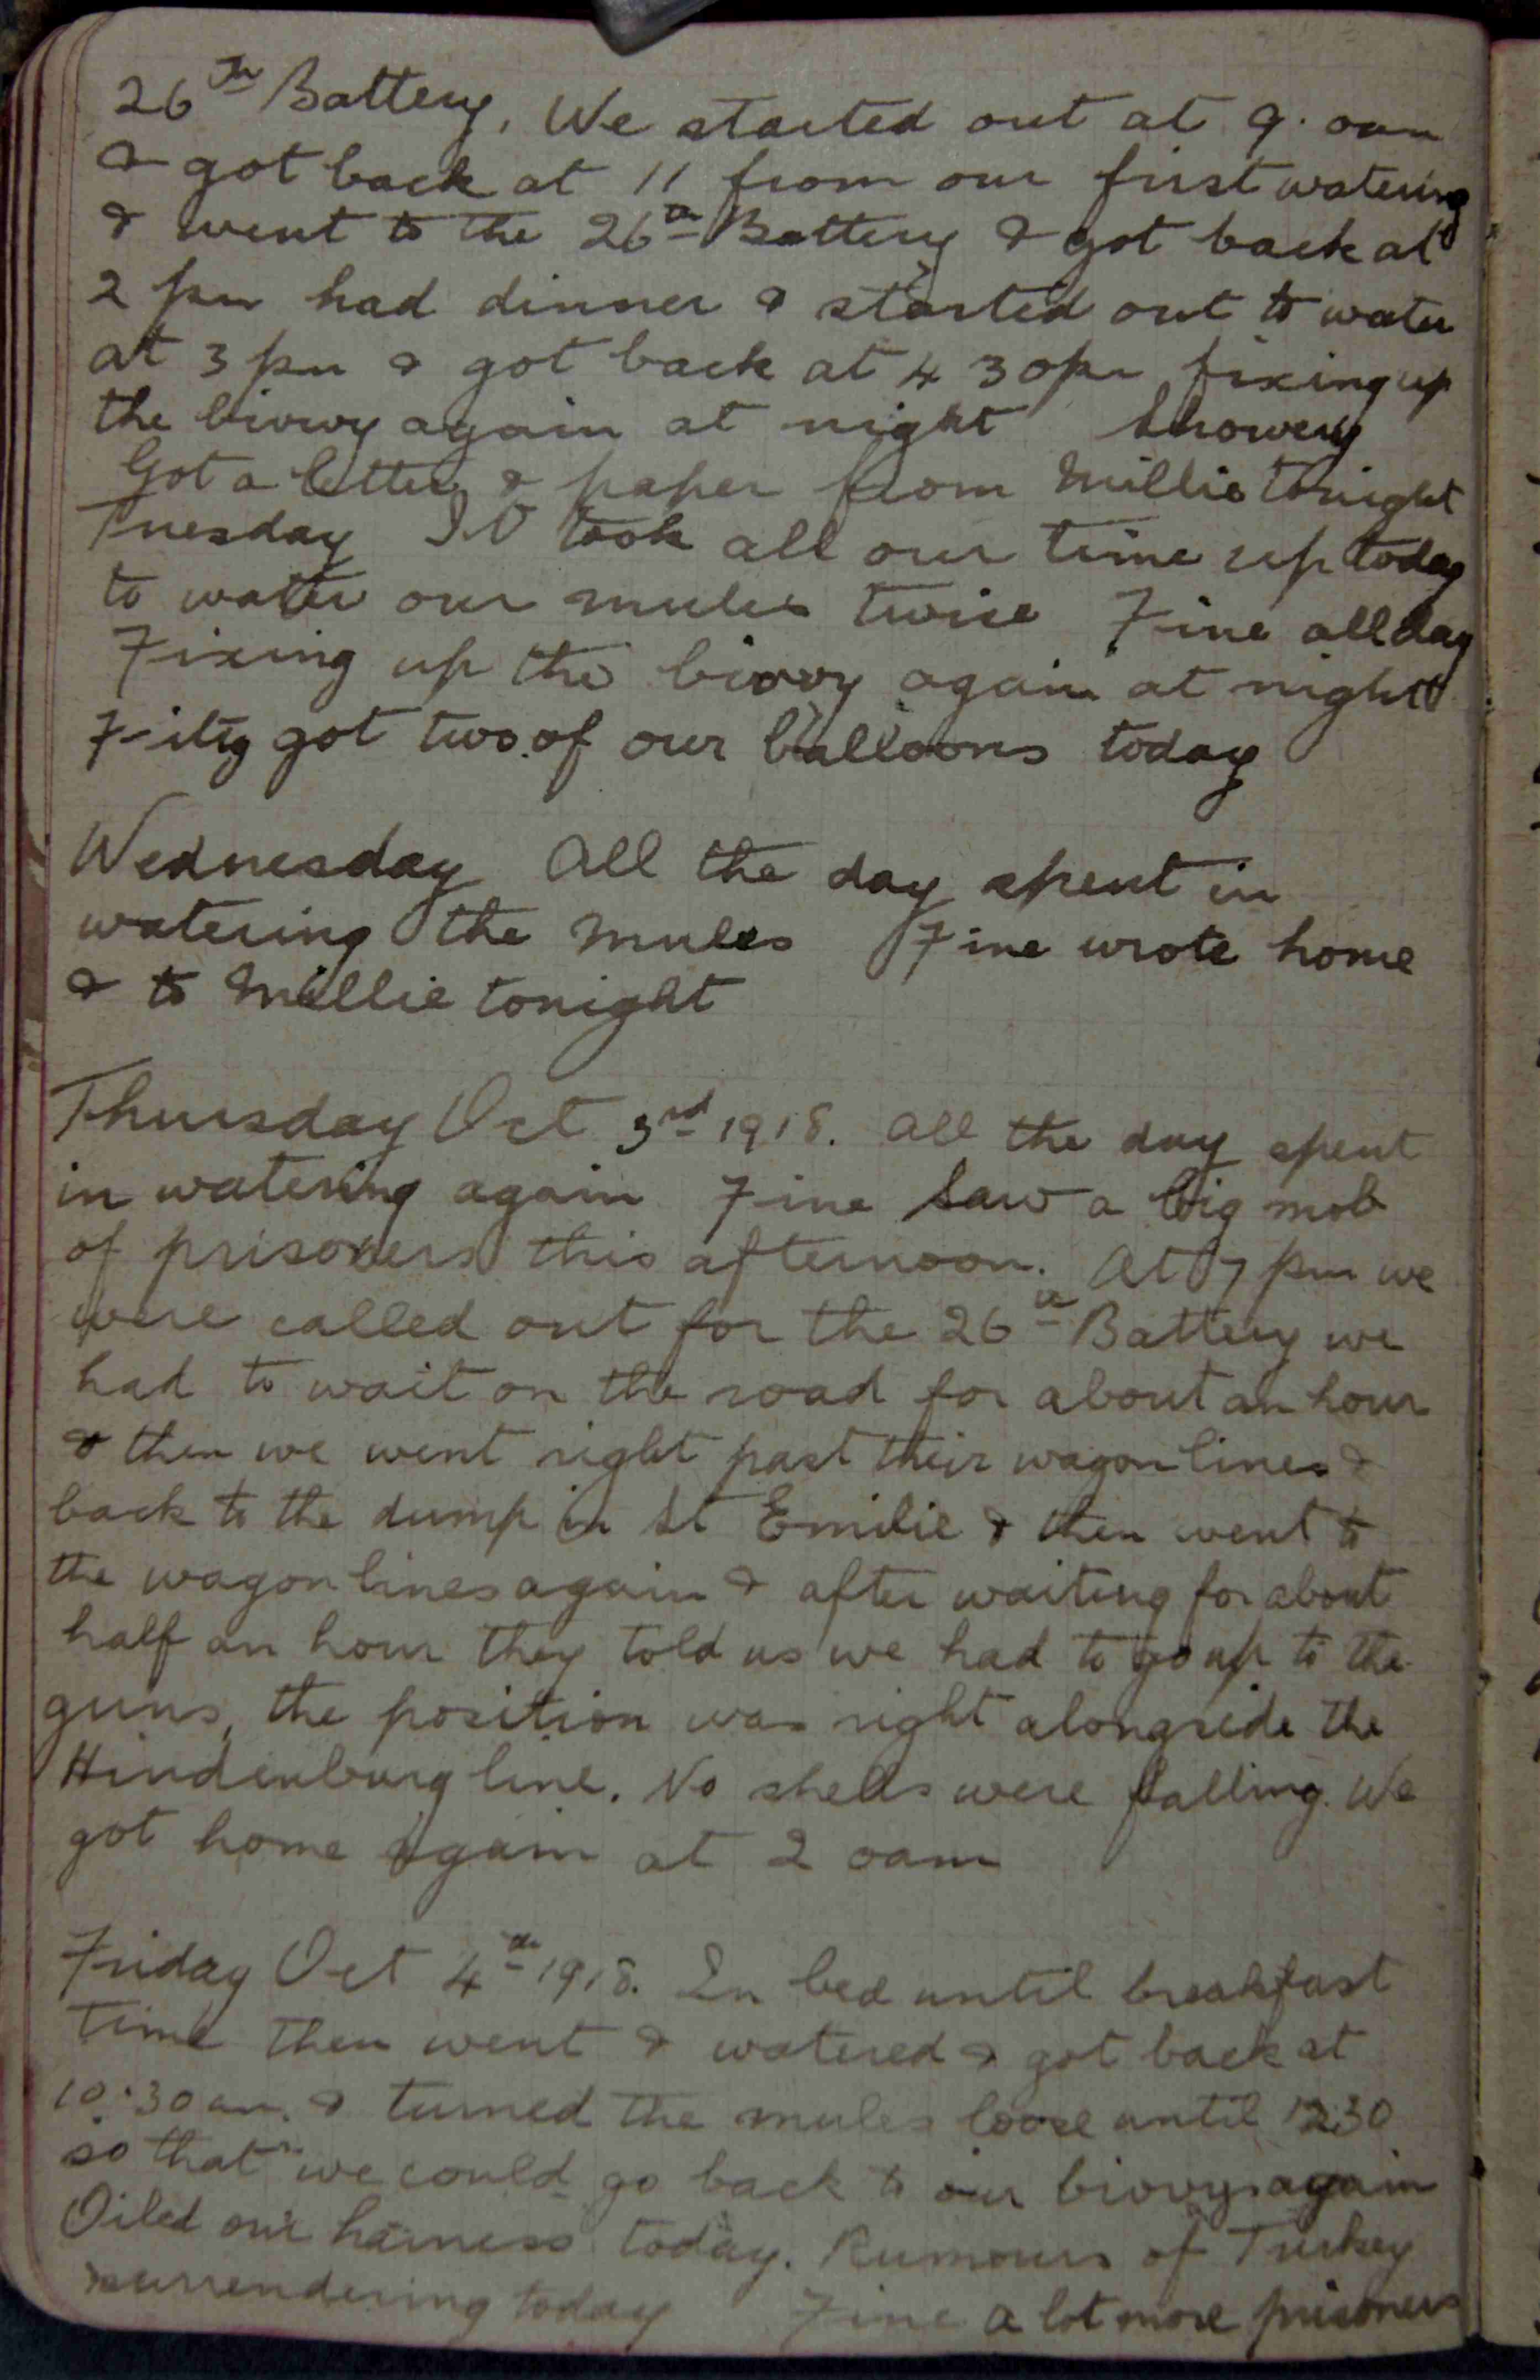 26th Battery, We started out at 9. oam
& got back at 11 from our first watering
& went to the 26th Battery & got back at
2 pm had dinner & started out to water
at 3 pm & got back at 4 30pm fixing up
the bivvy again at night Showery
Got a letter & paper from Millie tonight
Tuesday It took all our time up today
to water our mules twice Fine all day
Fixing up the bivvy again at night
Fritz got two of our balloons today
Wednesday All the day spent in
watering the mules Fine wrote home
& to Millie tonight
Thursday Oct 3rd 1918. All the day spent
in watering again Fine Saw a big mob
of prisoners this afternoon. At 7 pm we
were called out for the 26th Battery we
had to wait on the road for about an hour
& then we went right past their wagon lines &
back to the dump in St Emilie & then went to
the wagon lines again & after waiting for about
half an hour they told us we had to go up to the
guns, the position was right alongside the
Hindenburg line. No shells were falling. We
got home again at 2 oam
Friday Oct 4th 1918. In bed until breakfast
time then went & watered & got back at
10.30am. & turned the mules loose until 1230
so that we could go back to our bivvys again
Oiled our harness today. Rumours of Turkey
surrendering today Fine a lot more prisoners